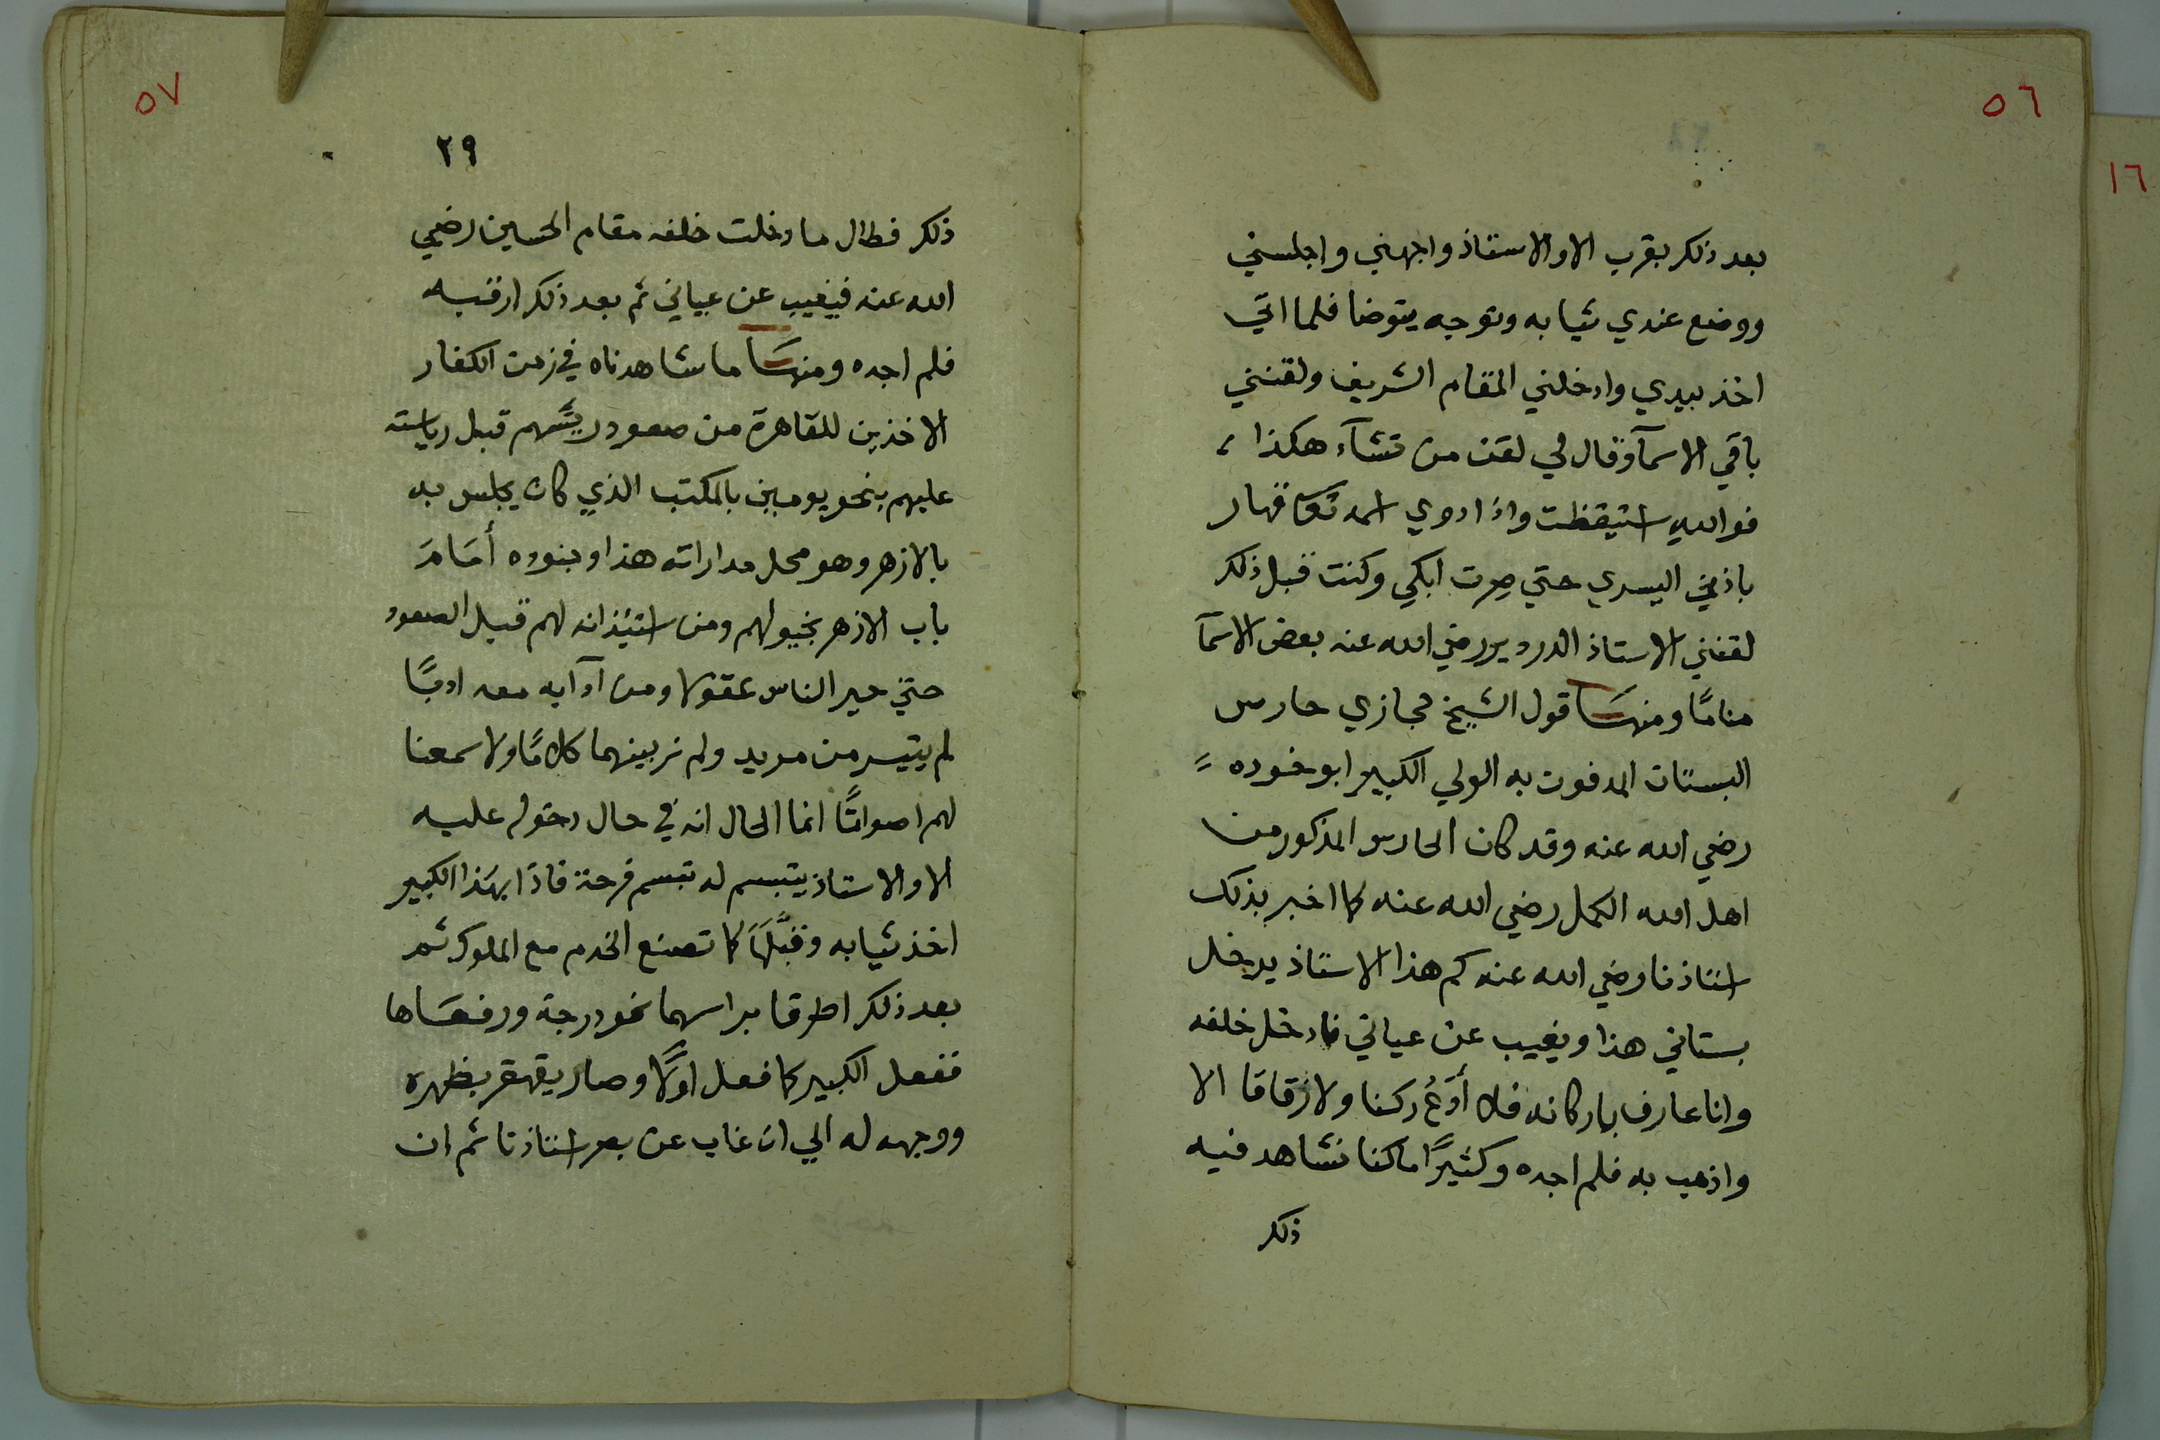 ٥٦
١٦
بعد ذلك بقرب الاوالاستاذ واجهني واجلسني
ووضع عندي ثيابه وتوجه يتوضا فلما اتي
اخذ بيدي وادخلني المقام الشريف ولقنني
باقي الاسمآ وقال لي لقن من تشآء هكذا ،
فوالله استيقظت واذا دوي اسمه تعا قهار
باذني اليسري حتي صرت ابكي وكنت قبل ذلك
لقنني الاستاذ الدردير رضي الله عنه بعض الاسمآ
منامًا ومنهسَا قول الشيخ حجازي حارس
البستان المدفون به الولي الكبير ابو خوده =
رضي الله عنه وقد كان الحارس المذكور من
اهل الله الكمل رضي الله عنه كما اخبر بذلك
استاذنا رضي الله عنه كم هذا الاستاذ يدخل
بستاني هذا ويغيب عن عياني فادخل خلفه
وانا عارف باركانه فلا أدَعُ ركنا ولا زقاقا الا
واذهب به فلم اجده وكثيرًا ما كنا نشاهد فيه
ذلك
٥٧
٢٩
ذلك فطال ما دخلت خلفه مقام الحسين رضي
الله عنه فيغيب عن عياني ثم بعد ذلك ارقبه
فلم اجده ومنهسَا ما شاهدناه في زمن الكفار
الاخذين للقاهرة من صعود ريئسهم قبل رياسته
عليهم بنحو يومين بالمكتب الذي كان يجلس به
بالازهر وهو محل مداراته هذا وجنوده أمَامَ
باب الازهر بخيولهم ومن استيذانه لهم قبل الصعود
حتي حير الناس عقولا ومن آدابه معه ادبًا
لم يتيسر من مريد ولم نر بينهما كلامًا ولا سمعنا
لهم اصواتًا انما الحال انه في حال دخوله عليه
الاوالاستاذ يتبسم له تبسم فرحة فاذا بهذا الكبير
اخذ ثيابه وقبَّلهَا كما تصنع الخدم مع الملوك ثم
بعد ذلك اطرقا براسهما نحو درجة ورفعَاها
ففعل الكبير كما فعل اولًا وصار يقهقر بظهره
ووجهه له الي ان غاب عن بصر استاذنا ثم ان